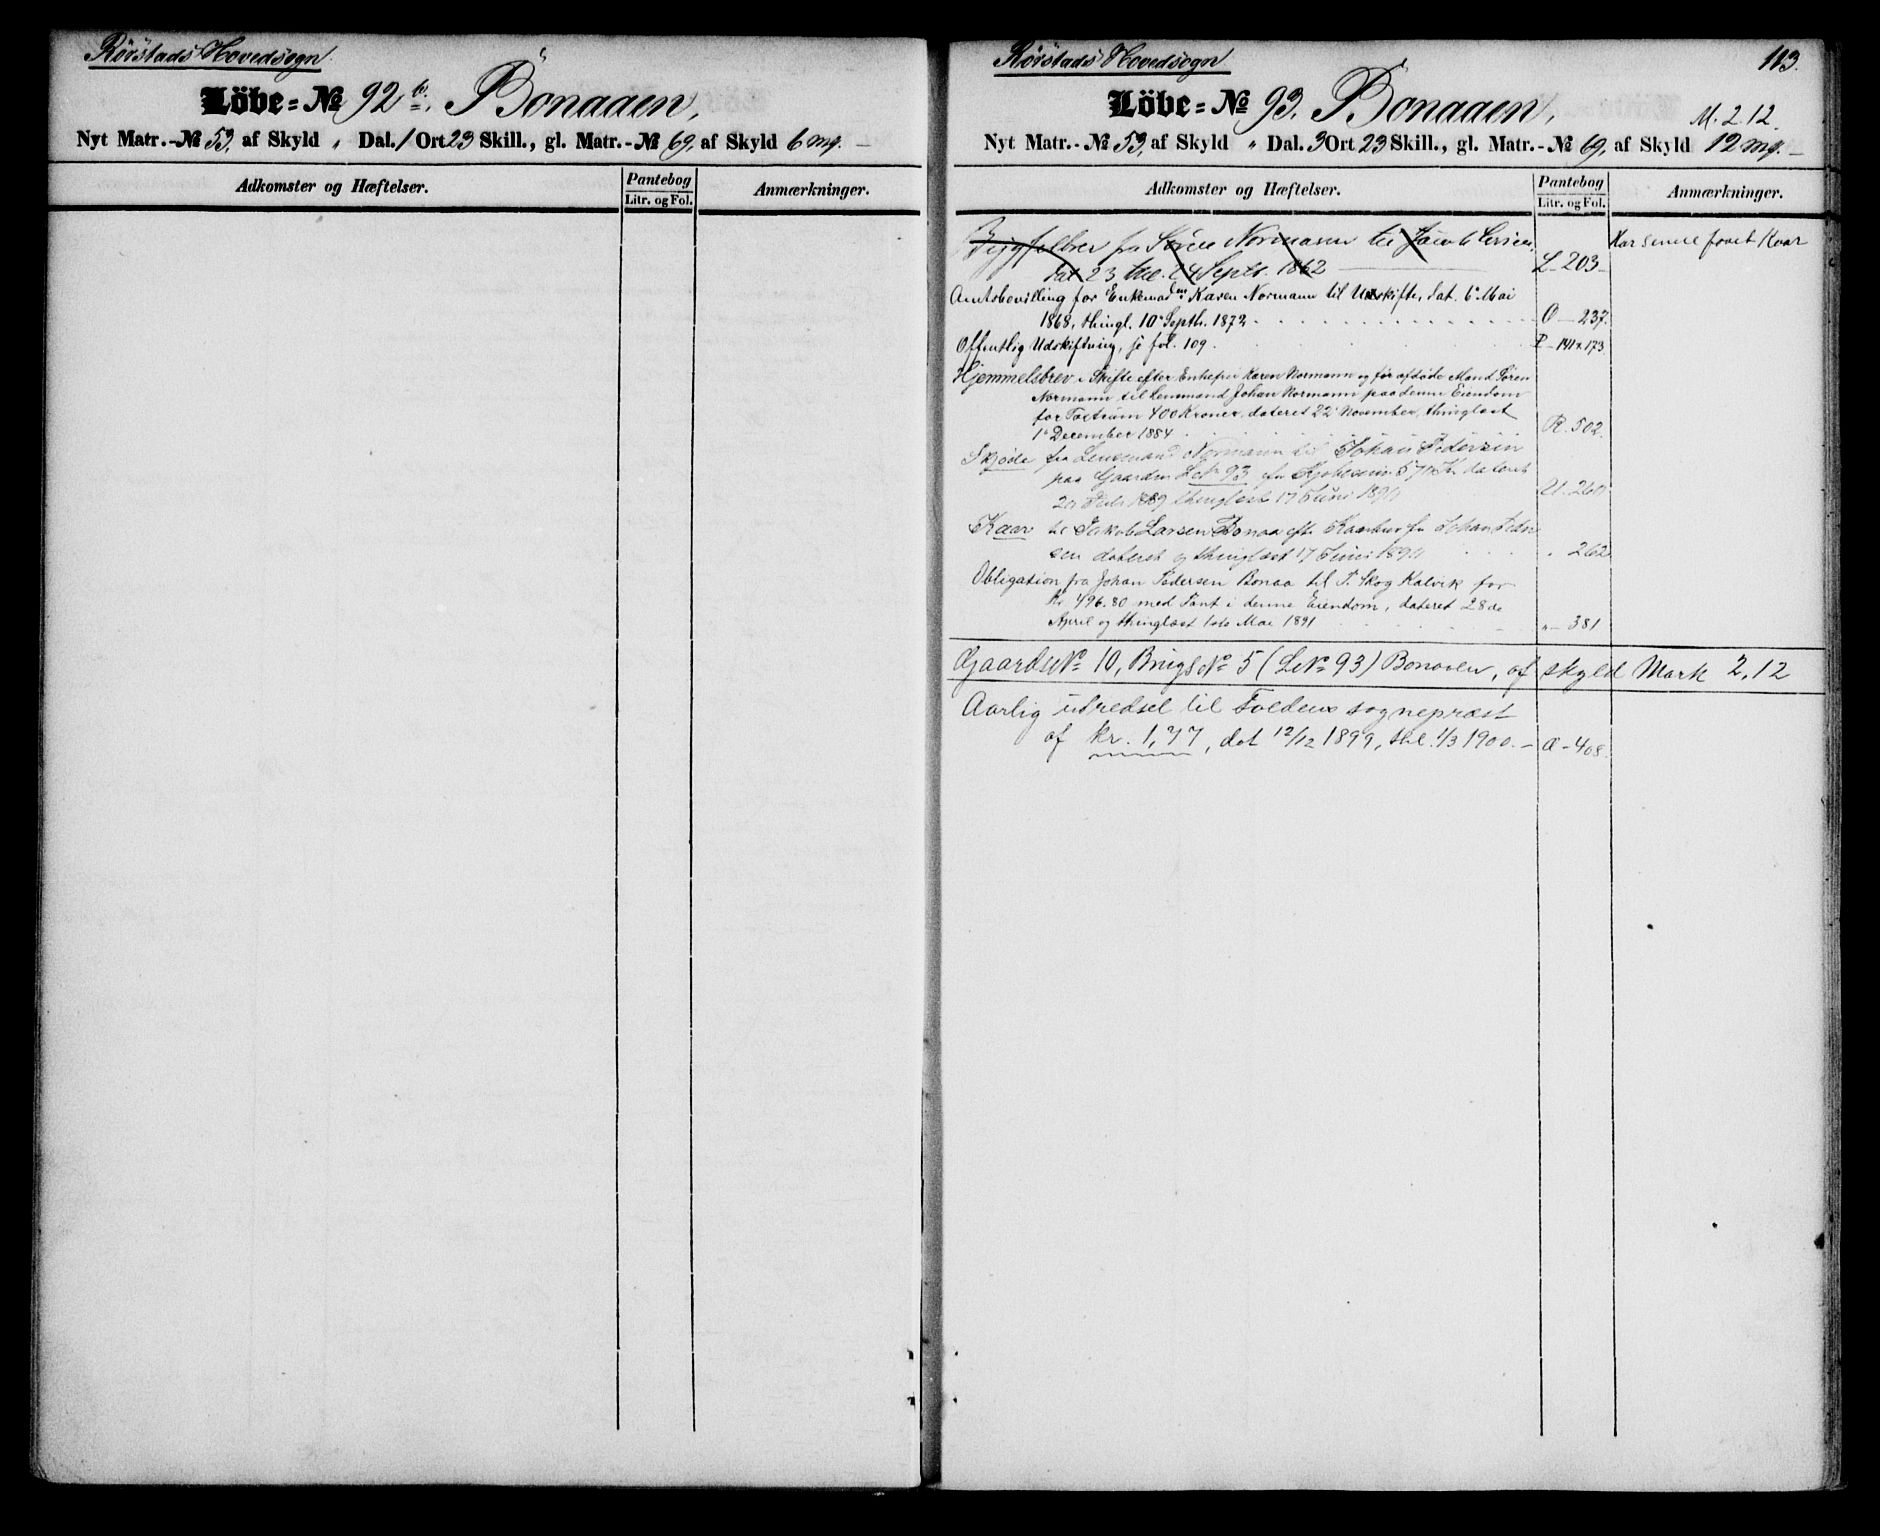 Röistads Hovedsogn.
Löbe-No 92 b. Bonaaen,
Nyt Matr.-No 53, af Skyld " Dal. 1 Ort 23 Skill., gl. Matr.-No 69, af Skyld 6 mg. —
Adkomster og Hæftelser.
Pantebog
Litr. og Fol.
Anmærkninger.
Röistads Hovedsogn
113.
Löbe-No 93. Bonaaen,
M. 2.12.
Nyt Matr.-No 53, af Skyld " Dal. 3 Ort 23 Skill., gl. Matr.-No 69, af Skyld 12 mg. —
Adkomster og Hæftelser.
Pantebog
Litr. og Fol.
Anmærkninger.
Bygselbrev fra Sören Normann til Jacob Larsen,
dat. 23 24 Septr. 1862 — L - 203 -
Har senere faaet Kaar
Amtsbevilling for Enkemadm Karen Normann til Udskifte, dat. 6 Mai
1868, thingl. 10 Septb. 1872 O - 237.
Offentlig Udskiftning, se fol. 109. P - 141 x 173
Hjemmelsbrev i Skifte efter Enkefru Karen Normann og før afdøde Mand Sören
Normann til Lensmand Johan Normann paa denne Eiendom
for Taxtsum 400 Kroner, dateret 22 November, thinglæst
1 December 1884 R. 502.
Skjøde fra Lensmand Normann til Johan Pedersen
paa Gaarden L No 93 for Kjøbesum dateret
1889 thinglæst 17 Juni 1890 U. 260
Kaar til Jakob Larsen Bonaa efter Kaarbrev fra Johan Peder
sen dateret og thinglæst 17 Juni 1890 " 262
Obligation fra Johan Pedersen Bonaa til P. Skog Kalvik for
Kr 496.80 med Pant i denne Eiendom, dateret 28de
April og thinglæst 1ste Mai 1891 " - 381
Gaards No 10, Brugs No 5 (L No 93) Bonaaen, af skyld Mark 2,12
Aarlig utredsel til Foldens sognepræst
af kr. 1,77, dat 12/12 1899, thl. 1/3 1900. — Æ - 408.